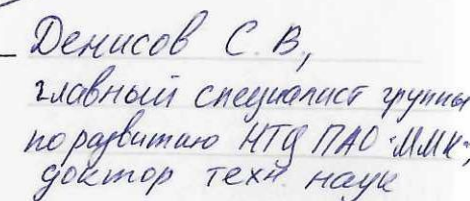 Денисов С.В.,
главный специалист группы
по развитию НТД ПАО "ММК",
доктор техн. наук